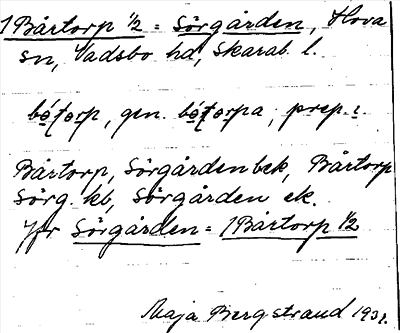 1 Bårtorp ½ = Sörgården, Hova
sn, Vadsbo hd, Skarab. l.
bó̱to̱rp, gen. bó̱to̱rpa; prep. i.
Bårtorp, Sörgården bek, Bårtorp
Sörg. kb, Sörgården ek.
Jfr Sörgården = 1 Bårtorp ½
Maja Bergstrand 1931.